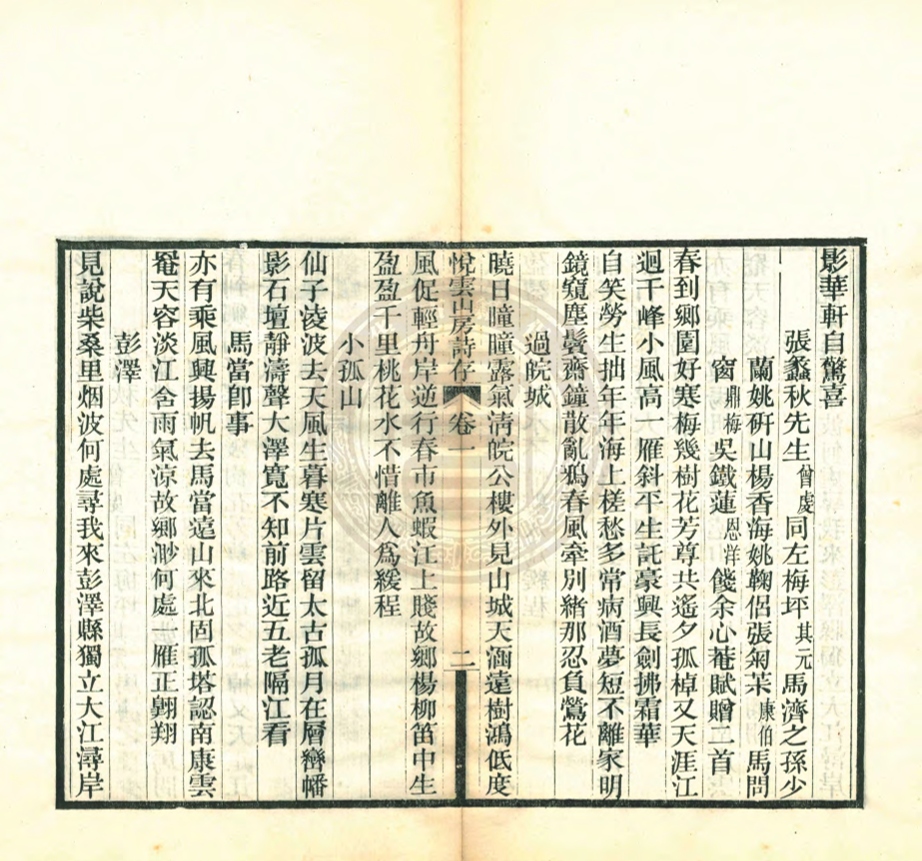 影華軒自驚喜
張蠡秋先生曾虔同左梅坪其元馬濟之孫少
蘭姚硏山楊香海姚鞠侶張菊苿康伯馬問
窗鼎梅吳鐵蓮恩洋餞余心菴賦贈二首
春到鄉園好寒梅幾樹花芳尊共遙夕孤棹又天涯江
迴千峰小風高一雁斜平生託豪興長劍拂霜華
自笑勞生拙年年海上槎愁多常病酒夢短不離家明
鏡窺塵鬢齋鐘散亂鴉春風牽別緒那忍負鶯花
過皖城
曉日曈曈露氣淸皖公樓外見山城天涵遠樹鴻低度
悅雲山房詩存 卷一 二
風促輕舟岸逆行春市魚蝦江上賤故鄉楊柳笛中生
盈盈千里桃花水不惜離人爲緩程
小孤山
仙子淩波去天風生暮寒片雲留太古孤月在層巒幡
影石壇靜濤聲大澤寬不知前路近五老隔江看
馬當卽事
亦有乘風興揚帆去馬當遠山來北固孤塔認南康雲
罨天容淡江含雨氣涼故鄉渺何處一雁正翺翔
彭澤
見說柴桑里烟波何處尋我來彭澤縣獨立大江潯岸